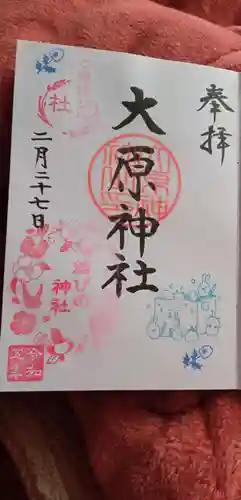 奉拝
大原神社
二月二十七日
社
むすひの
神社
令和
五年